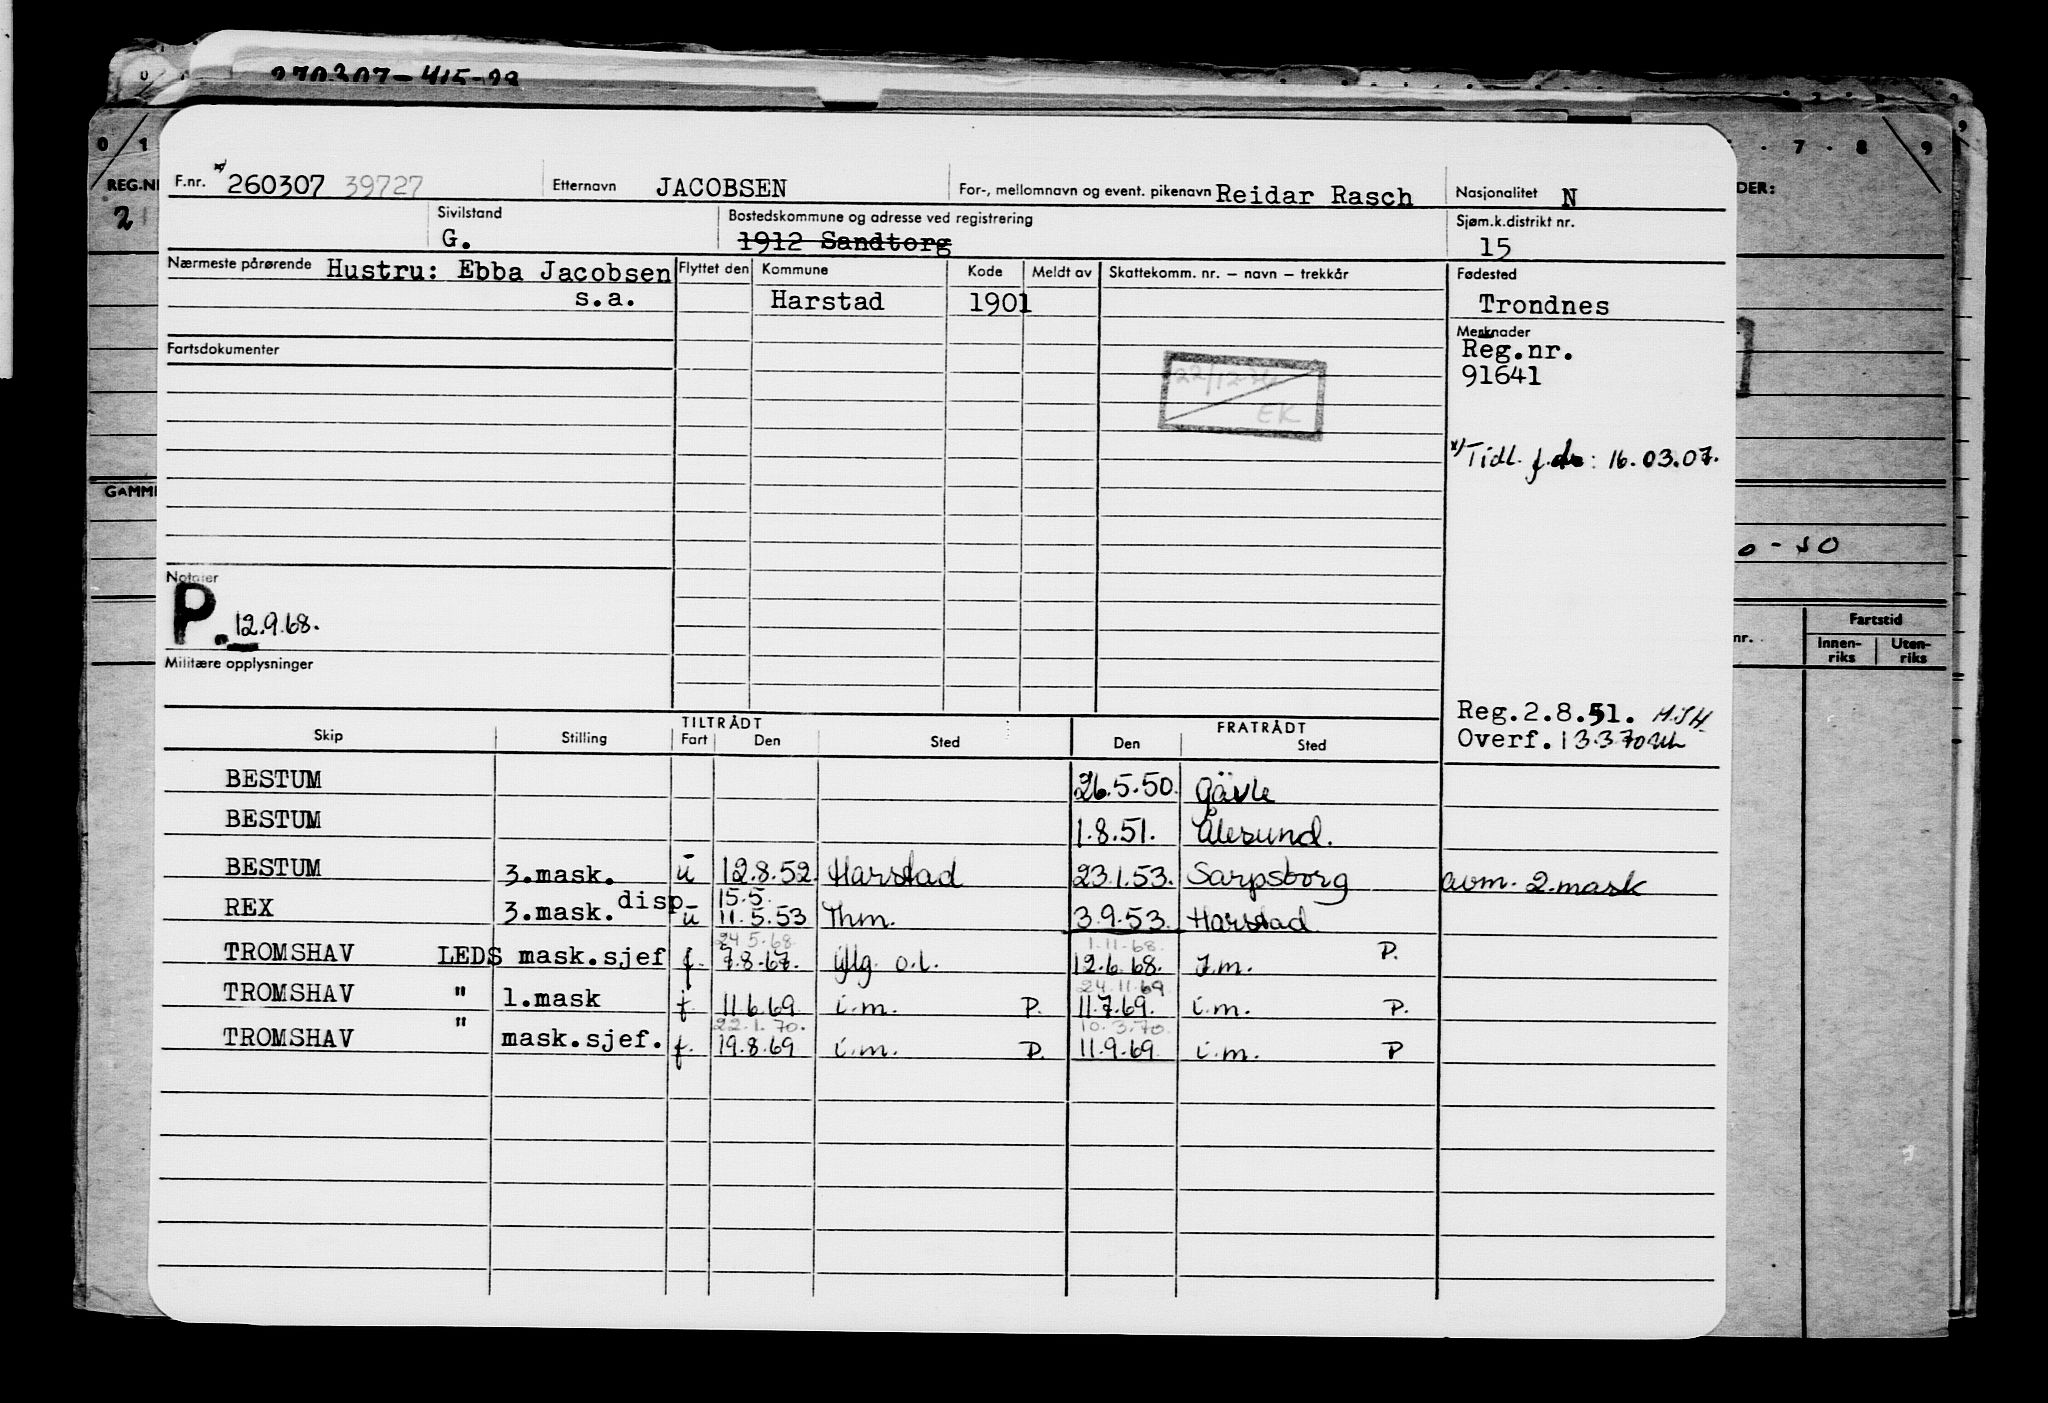 270307-415-29
0 1 7 8 9
REG.NR
2
DER:
F.nr. x) 260307 39727 Etternavn JACOBSEN For-, mellomnavn og event. pikenavn Reidar Rasch Nasjonalitet N
Sivilstand G. Bostedskommune og adresse ved registrering 1912 Sandtorg Sjøm.k.distrikt nr. 15
Nærmeste pårørende Hustru: Ebba Jacobsen Flyttet den Kommune Kode Meldt av Skattekomm. nr. – navn – trekkår Fødested
s.a. Harstad 1901 Trondnes
Merknader
Fartsdokumenter Reg.nr.
91641
22/12-76
EK
x) Tidl. f.dr: 16.03.07.
GAMME
0 - 50
Notater
P. 12.9.68.
Militære opplysninger
Fartstid
nr. Innen-riks Uten-riks
Reg.2.8.51. H.J.H.
Overf. 13.3.70
TILTRÅDT FRATRÅDT
Skip Stilling Fart Den Sted Den Sted
BESTUM 26.5.50. Gävle
BESTUM 1.8.51. Ålesund.
BESTUM 3.mask. u 12.8.52. Harstad 23.1.53. Sarpsborg avm. 2.mask
disp 15.5.
REX 3.mask. u 11.5.53 Thm. 3.9.53. Harstad
24.5.68. 1.11.68.
TROMSHAV LEDS mask.sjef f. 7.8.67. iflg. o.l. 12.6.68. I.m. P.
24.11.69
TROMSHAV " 1.mask f. 11.6.69 i.m. P. 11.7.69. i.m. P.
22.1.70. 10.3.70.
TROMSHAV " mask.sjef. f. 19.8.69 i.m. P. 11.9.69. i.m. P